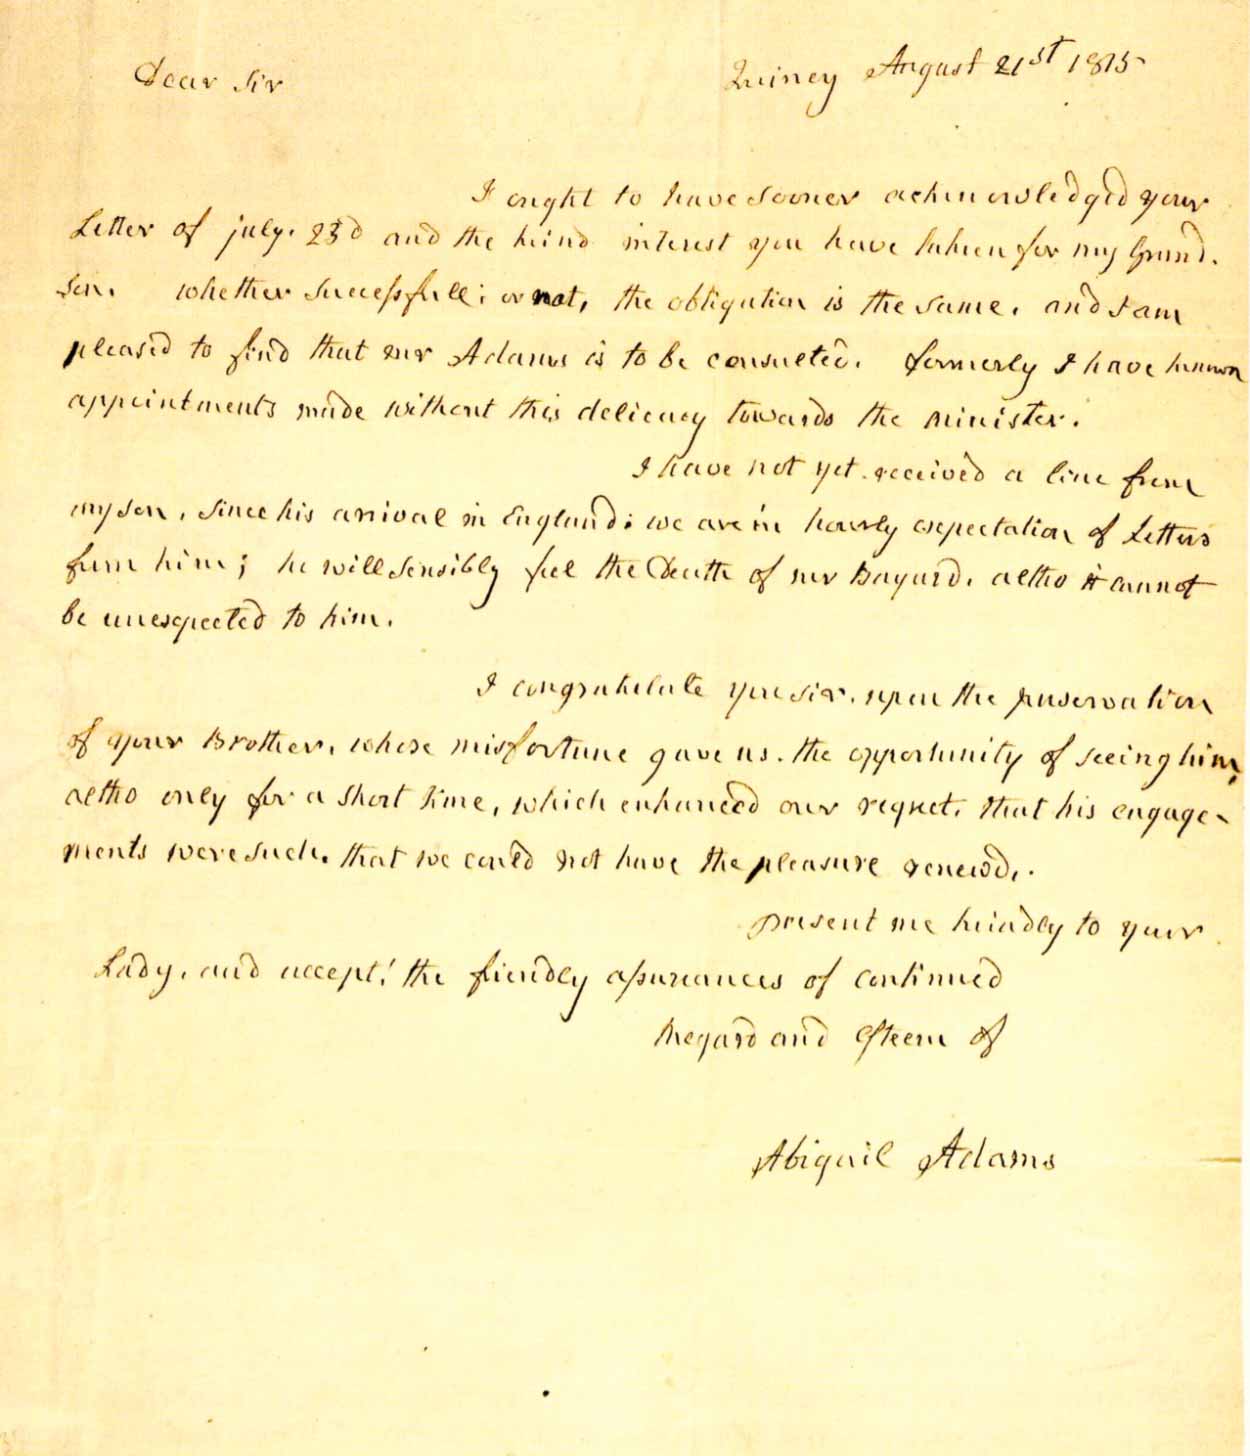 Quincy August 21st 1815
Dear Sir
I ought to have sooner acknowledged your
Letter of july. 23d and the kind interest you have taken for my Grand.
son. whether successfull; or not, the obligation is the same. and I am
pleased to find that mr Adams is to be consulted. formerly I have known
appointments made without this delicacy towards the minister.
I have not yet received a line from
my son, since his arrival in England; we are in hourly expectation of Letters
from him; he will sensibly feel the Death of mr Bayard. altho it cannot
be unexpected to him.
I congratulate you sir. upon the preservation
of your Brother, whose misfortune gave us. the opportunity of seeing him,
altho only for a short time, which enhanced our regret. that his engage-
ments were such. that we could not have the pleasure renewd,.
present me kindly to your
Lady. and accept! the friendly assureances of continued
Regard and Esteem of
Abigail Adams